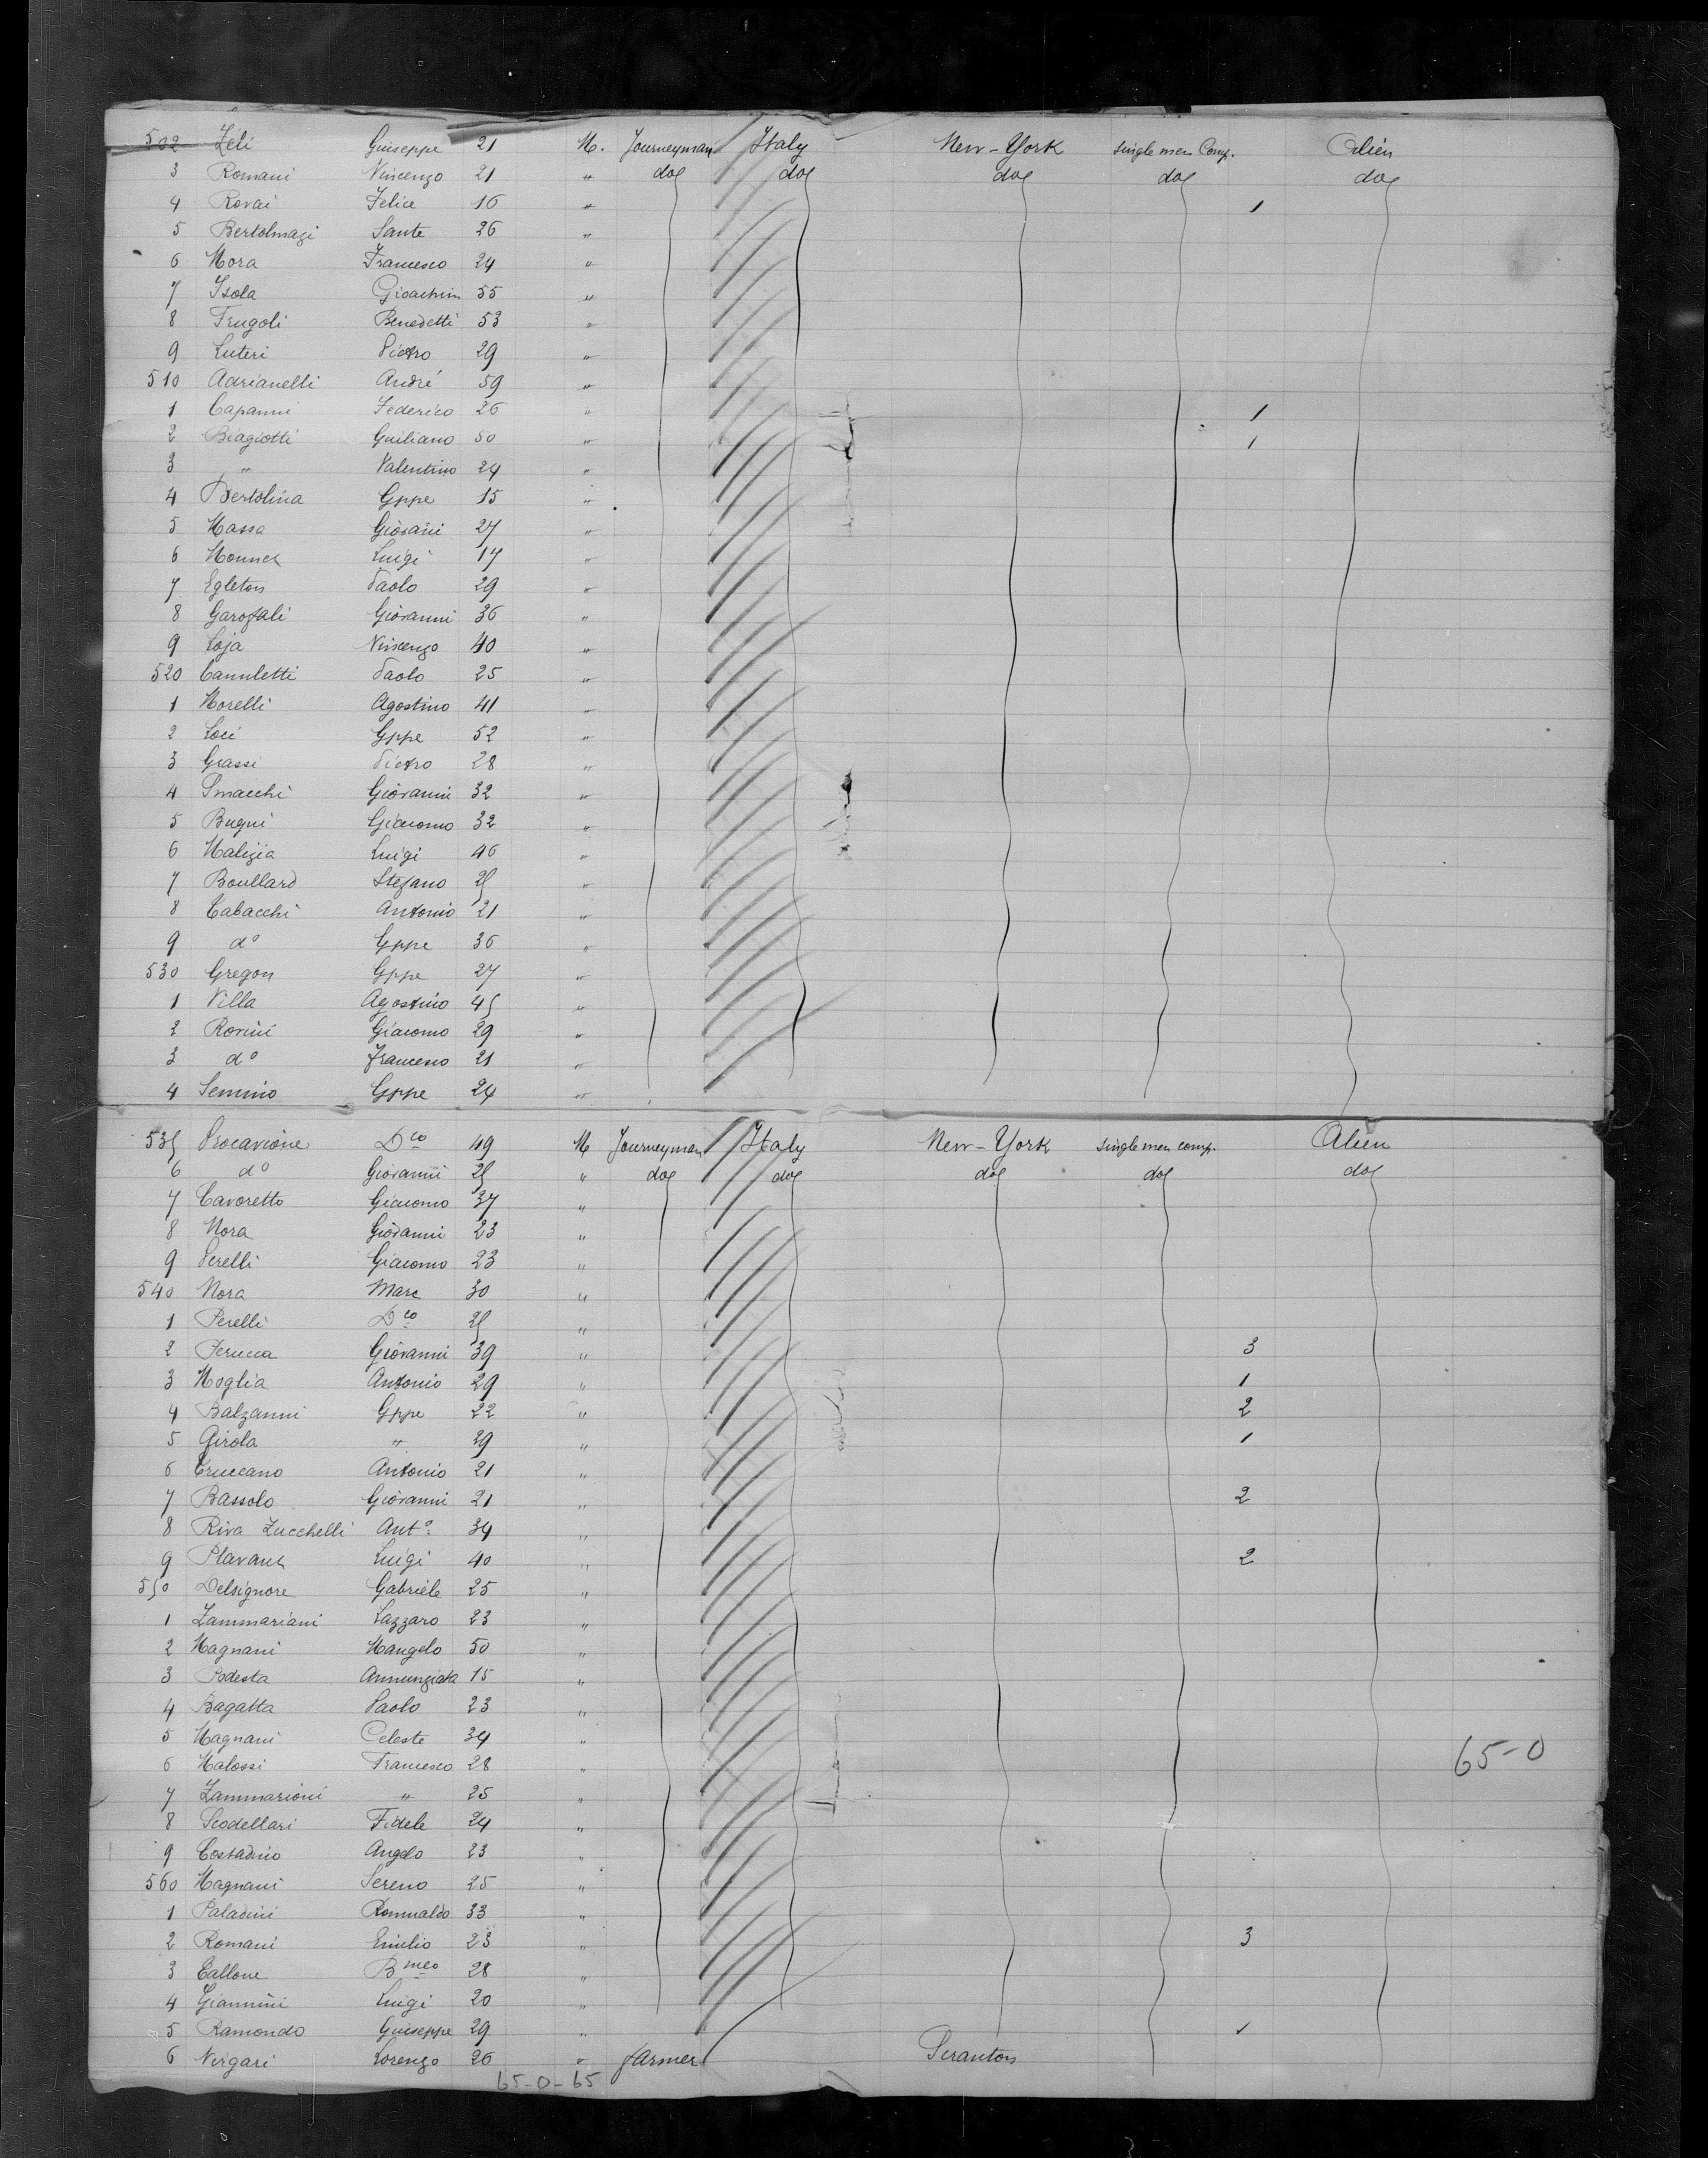 502 Zeli Guiseppe 21 M. Journeyman Italy New-York single men Comp. Alien
3 Romani Vincenzo 21 " do do do do do
4 Rovai Felice 16 " 1
5 Bertolmazi Sante 26 "
6 Mora Francesco 24 "
7 Isola Gioachim 55 "
8 Frugoli Benedetti 53 "
9 Luteri Pietro 29 "
510 Adrianelli André 59 "
1 Capanni Federico 26 " 1
2 Biagiotti Guiliano 50 " 1
3 " Valentino 24 "
4 Bertolina Gppe 15 "
5 Massa Giovani 27 "
6 Luigi 17 "
7 Egleton Paolo 29 "
8 Garofali Giovanni 36 "
9 Loja Vincenzo 40 "
520 Cannletti Paolo 25 "
1 Morelli Agostino 41 "
2 Loci Gppe 52 "
3 Grassi Pietro 28 "
4 Smacchi Giovanni 32 "
5 Bugni Giacomo 32 "
6 Malizia Luigi 46 "
7 Boullard Stefano 25 "
8 Cabacchi Antonio 21 "
9 do Gppe 36 "
530 Gregon Gppe 27 "
1 Villa Agostino 45 "
2 Rovini Giacomo 29 "
3 do Francesco 21 "
4 Semino Gppe 24 "
535 Procavione Dco 49 M Journeyman Italy New-York single men comp. Alien
6 do Giovanni 25 " do do do do do
7 Cavoretto Giacomo 37 "
8 Nora Giovanni 23 "
9 Perelli Giacomo 23 "
540 Nora Marc 30 "
1 Perelli Dco 25 "
2 Perucca Giovanni 39 " 3
3 Moglia Antonio 29 " 1
4 Balzanni Gppe 22 " 2
5 Girola " 29 " 1
6 Truccano Antonio 21 "
7 Bassolo Giovanni 21 " 2
8 Riva Zucchelli Anto. 34 "
9 Luigi 40 " 2
550 Delsignore Gabriele 25 "
1 Zammariani Lazzaro 23 "
2 Magnani Mangelo 50 "
3 Podesta Annunziata 15 "
4 Bagatta Paolo 23 "
5 Magnani Celeste 34 "
6 Malossi Francesco 28 " 65-0
7 Zammarioni " 25 "
8 Scodellari Fidele 24 "
9 Costadino Angelo 23 "
560 Magnani Sereno 25 "
1 Paladini Romualdo 33 "
2 Romani Emilio 23 " 3
3 Callone Bmeo 28 "
4 Giannini Luigi 20 "
5 Ramondo Guiseppe 29 "
6 Vergari Lorenzo 26 " farmer Scranton
65-0-65